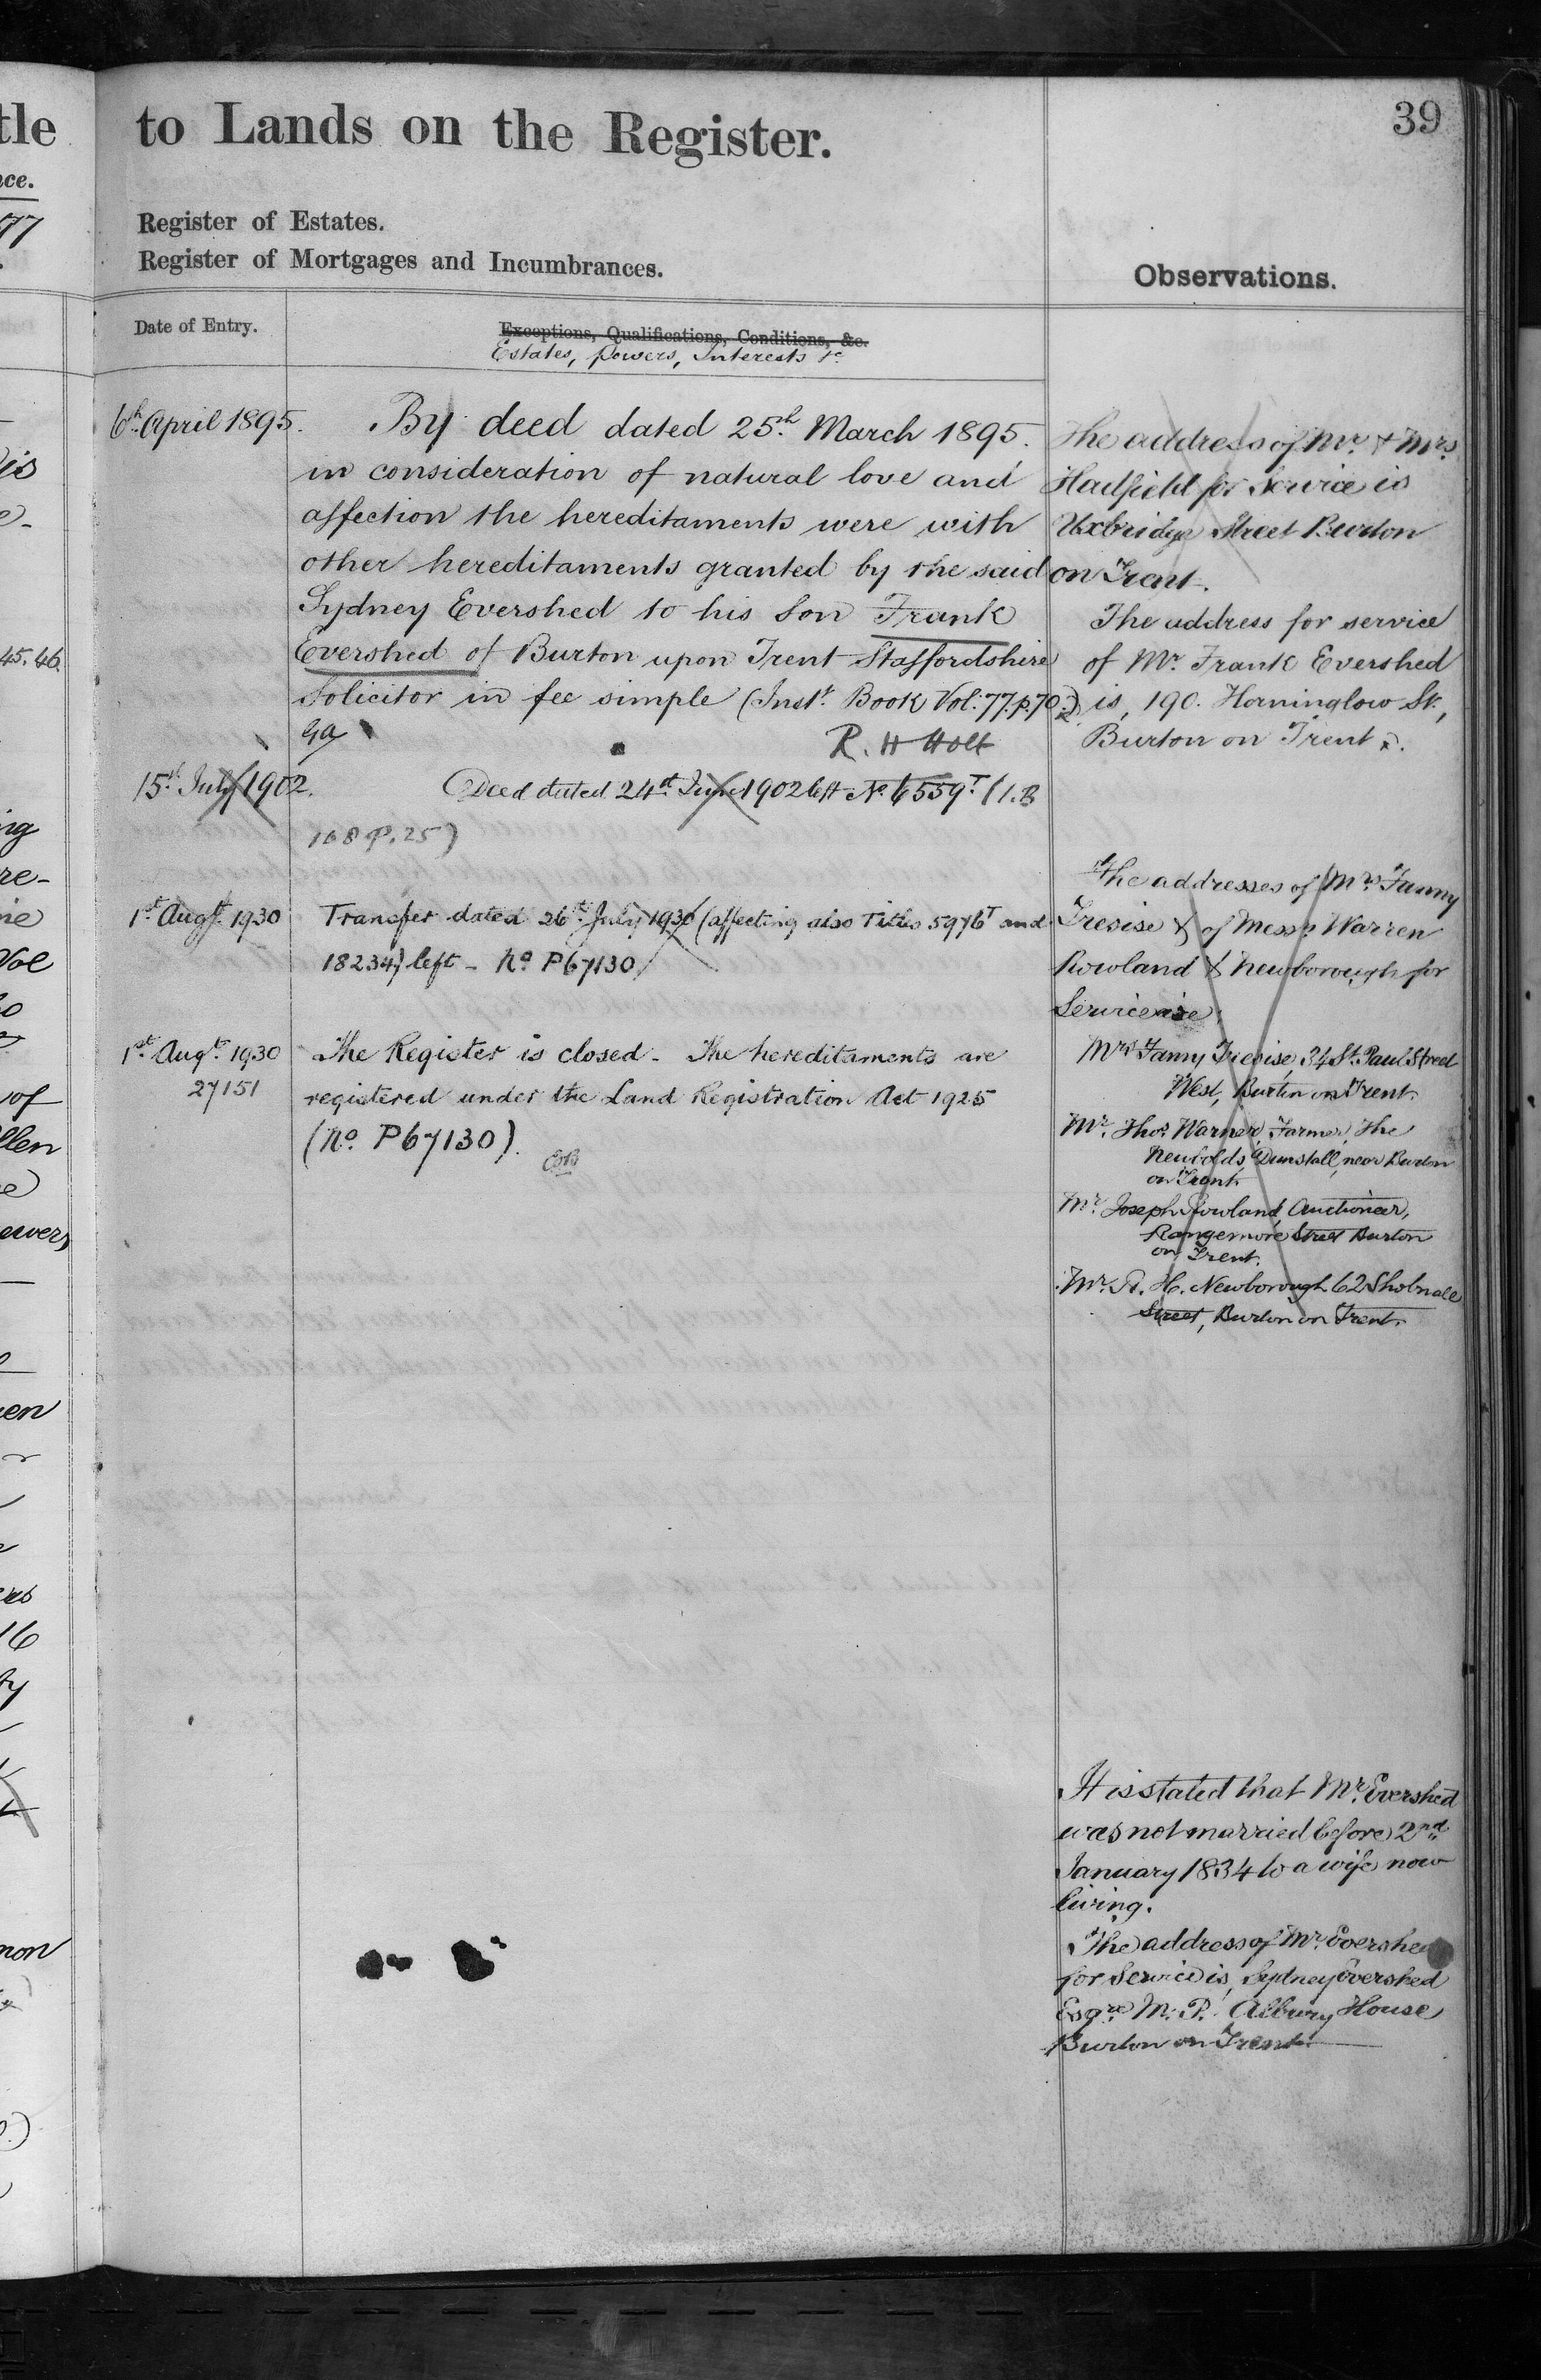 to Lands on the Register.
39
Register of Estates.
Register of Mortgages and Incumbrances.
Observations.
Date of Entry.
Exceptions, Qualifications, Conditions, &c.
Estates, powers, Interests &c
6th April 1895.
By deed dated 25th March 1895.
in consideration of natural love and
affection the hereditaments were with
other hereditaments granted by the said
Sydney Evershed to his son Frank
Evershed of Burton upon Trent Staffordshire
Solicitor in fee simple (Inst. Book Vol. 77. p. 70.)
R. H Holt
15th July 1902.
Deed dated 24th June 1902 left No. 6559T (I.B
168 P. 25)
1st Augt. 1930
Transfer dated 26th July 1930 (affecting also Titles 5976T and
18234) left - No. P67130
1st Augt. 1930
27151
The Register is closed - The hereditaments are
registered under the Land Registration Act 1925
(No. P67130).
The address of Mr. & Mrs.
Hadfield for Service is
Uxbridge Street Burton
on Trent.
The address for service
of Mr. Frank Evershed
is, 190. Horninglow St.,
Burton on Trent
The addresses of Mrs Fanny
Tresise & of Messrs Warren
Rowland & Newborough for
Service are
Mrs Fanny Tresise, 34 St. Paul Street
West, Burton on Trent.
Mr. Thos. Warner, Farmer, The
Newbolds, Dunstall, near Burton
on Trent
Mr. Joseph Rowland, Auctioneer,
Rangemore Street Burton
on Trent.
Mr. H. Newborough 62 Shobnall
Street, Burton on Trent.
It is stated that Mr. Evershed
was not married before 2nd
January 1834 to a wife now
living.
The address of Mr. Evershed
for Service is, Sydney Evershed
Esqre. M.P. Albury House
Burton on Trent.
tle
nce.
45.46